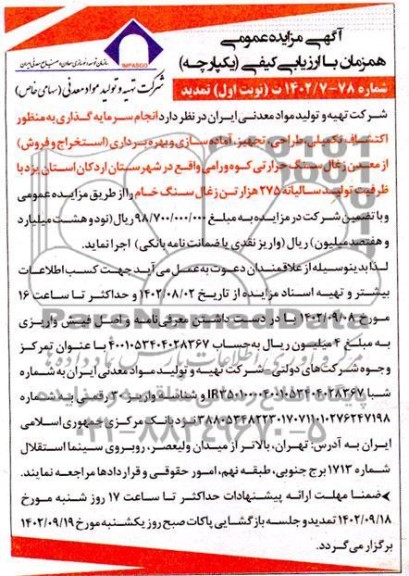 آگهی مزایده عمومی
همزمان با ارزیابی کیفی (یکپارچه)
شماره ۷۸-۱۴۰۲/۷ ت (نوبت اول) تمدید
IMPASCO
شرکت تهیه و تولید مواد معدنی (سهامی خاص)
شرکت تهیه و تولید مواد معدنی ایران در نظر دارد انجام سرمایه گذاری به منظور
اکتشاف تکمیلی، طراحی، تجهیز، آماده سازی و بهره برداری (استخراج و فروش)
از معدن زغال سنگ حرارتی کوه ورامی واقع در شهرستان اردکان استان یزد با
ظرفیت تولید سالیانه ۲۷۵ هزار تن زغال سنگ خام را از طریق مزایده عمومی
و با تضمین شرکت در مزایده به مبلغ ۹۸/۷۰۰/۰۰۰/۰۰۰ ریال (نود و هشت میلیارد
و هفتصد میلیون) ریال (واریز نقدی یا ضمانت نامه بانکی) اجرا نماید.
لذا بدینوسیله از علاقمندان دعوت به عمل می آید جهت کسب اطلاعات
بیشتر و تهیه اسناد مزایده از تاریخ ۱۴۰۲/۰۸/۰۲ و حداکثر تا ساعت ۱۶
مورخ ۱۴۰۲/۰۹/۰۸ با در دست داشتن معرفی نامه و اصل فیش واریزی
به مبلغ ۴ میلیون ریال به حساب ۴۰۰۱۰۵۳۴۰۴۰۲۸۳۶۷ با عنوان تمرکز
وجوه شرکت های دولتی - شرکت تهیه و تولید مواد معدنی ایران به شماره
شبا و شناسه واریز ۳۰ رقمی به شماره
نزد بانک مرکزی جمهوری اسلامی
ایران به آدرس: تهران، بالاتر از میدان ولیعصر، روبروی سینما استقلال
شماره ۱۷۱۳ برج جنوبی، طبقه نهم، امور حقوقی و قراردادها مراجعه نمایند.
ضمنا مهلت ارائه پیشنهادات حداکثر تا ساعت ۱۷ روز شنبه مورخ
۱۴۰۲/۰۹/۱۸ تمدید و جلسه بازگشایی پاکات صبح روز یکشنبه مورخ ۱۴۰۲/۰۹/۱۹
برگزار می گردد.
ParsNamadData
۰۲۱-۸۸۳۴۹۶۷۰-۵